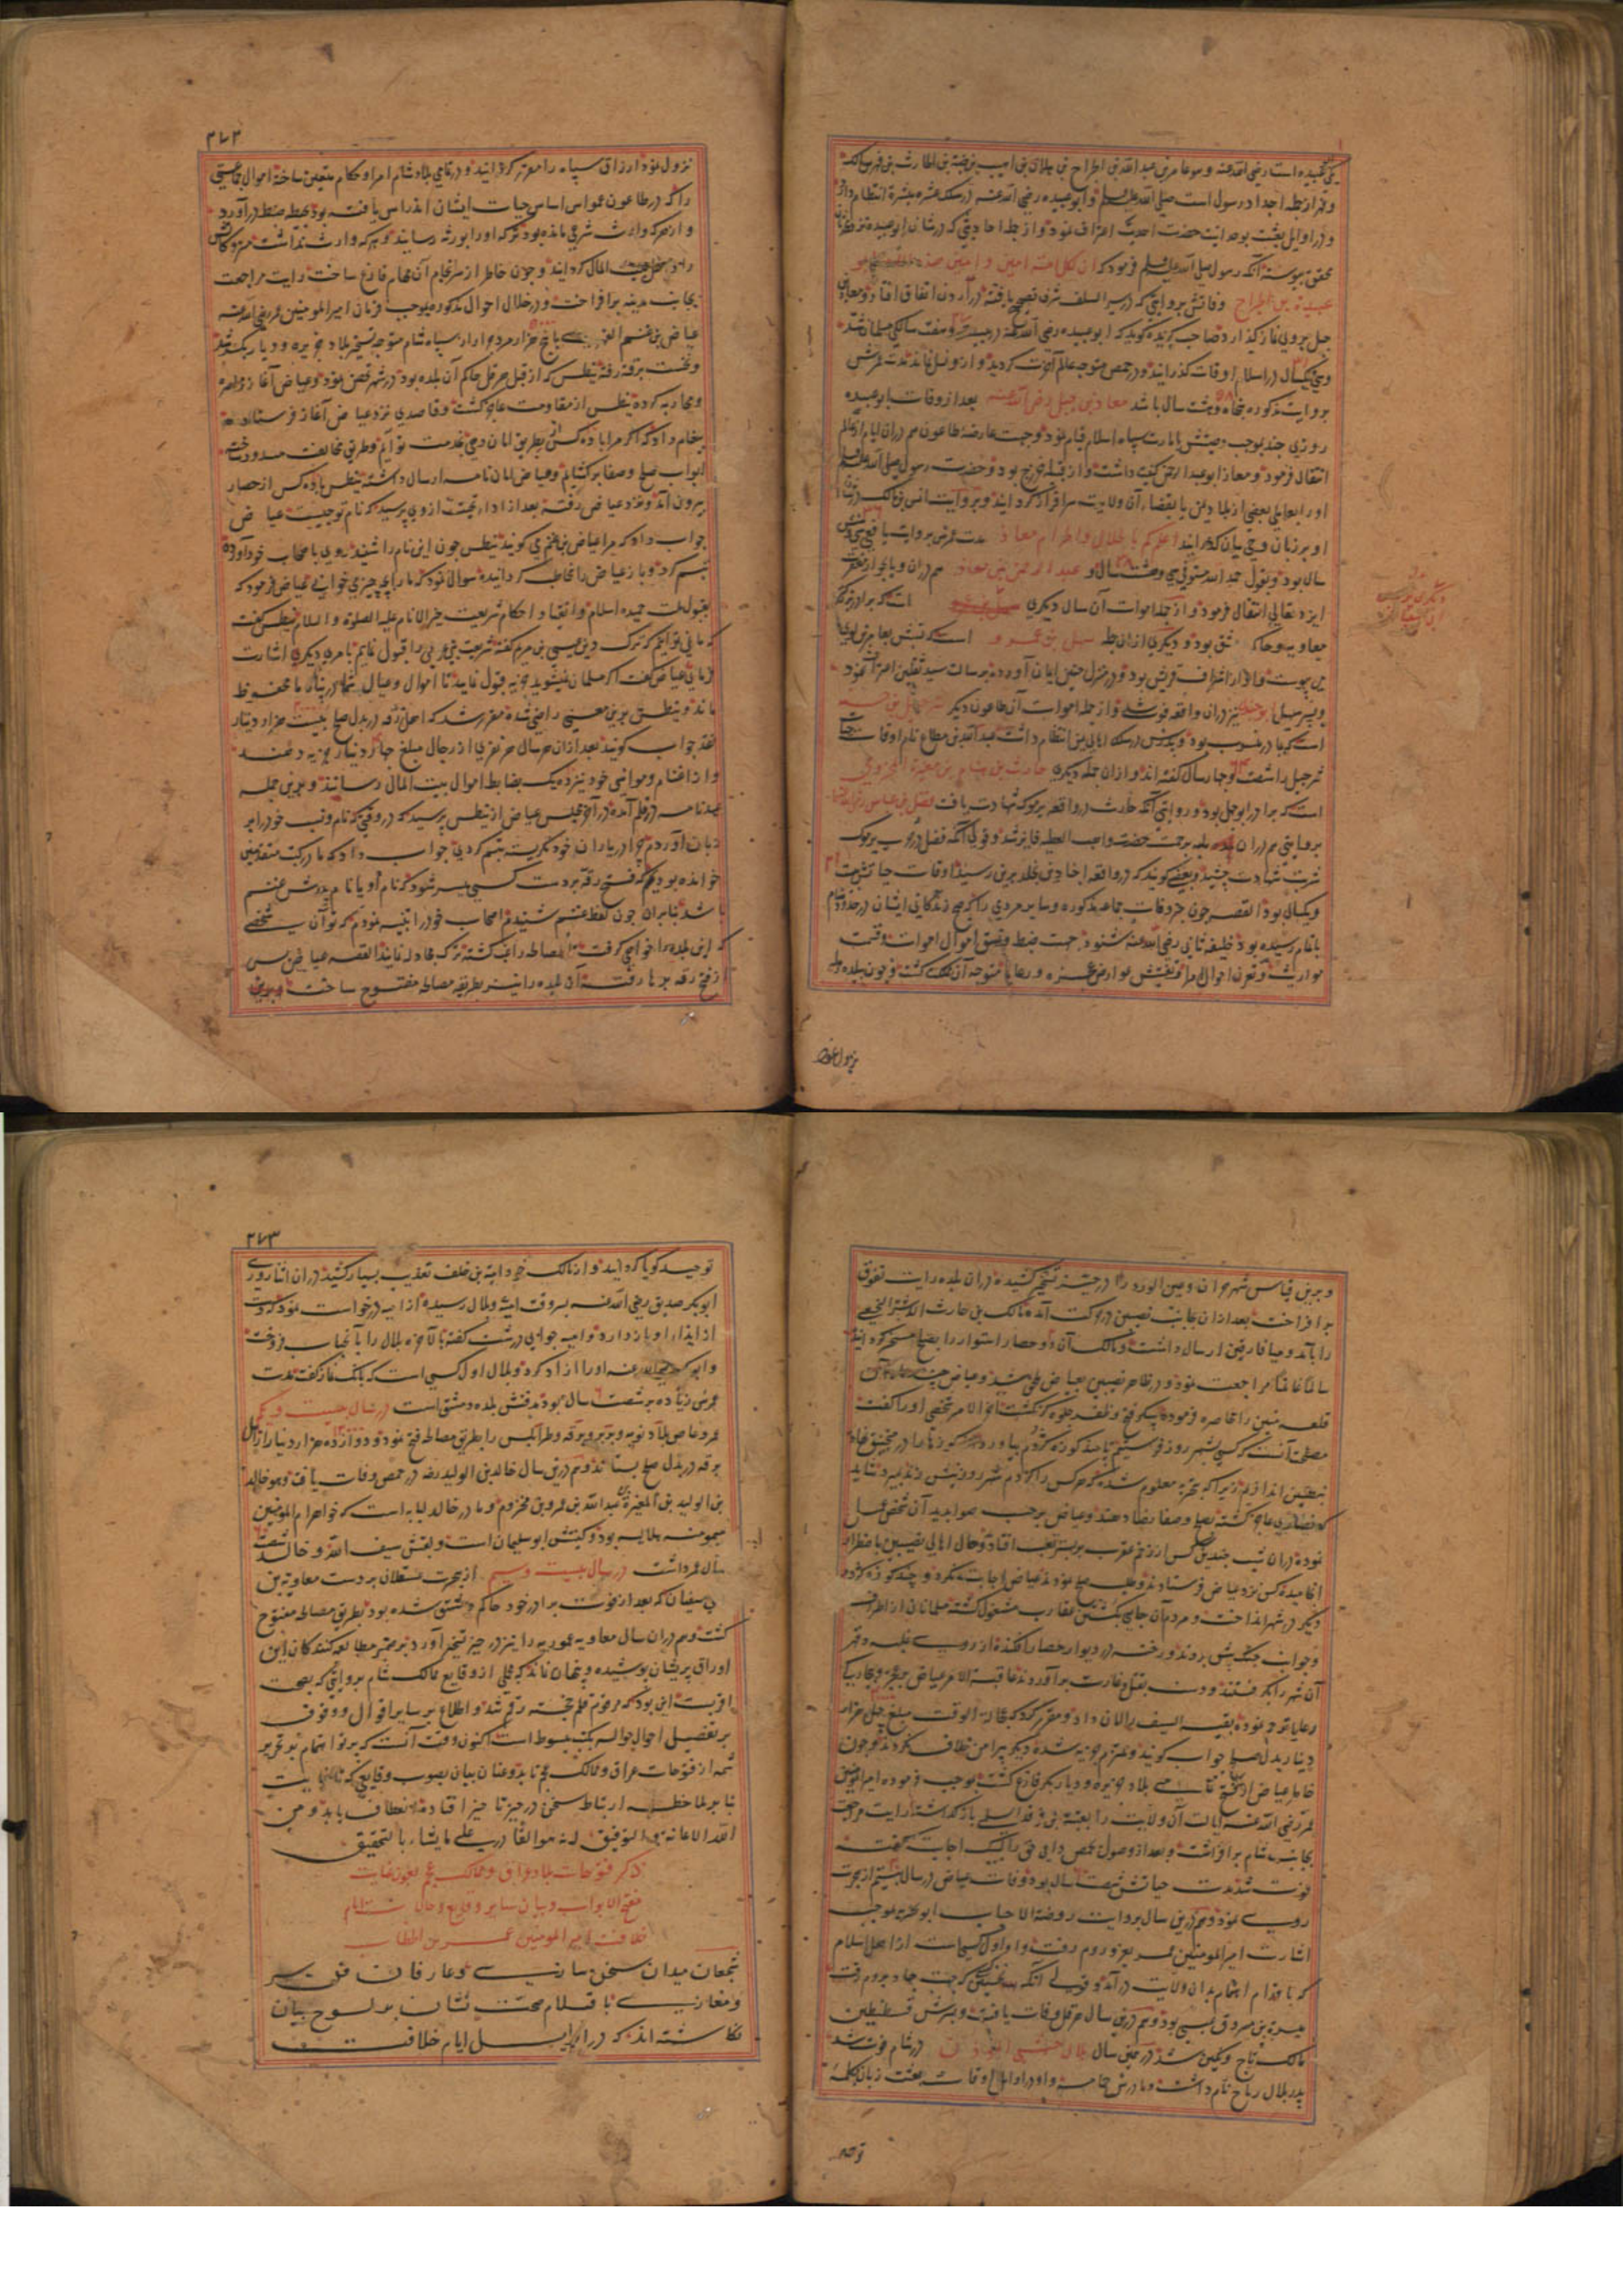 یکی ابو عبیده است رضی الله عنه و هو عامر بن عبد الله بن الجراح بن هلال بن اهیب بن ضبة بن الحارث بن فهر بن مالک
و فهر از جمله اجداد رسول است صلی الله علیه وسلم و ابو عبیده رضی الله عنه در سلک عشره مبشره انتظام دارد
و در اوایل بعثت بوحدانیت حضرت احدیت اعتراف نمود و از جمله احادیثی که در شان ابو عبیده
بحقیق پیوسته آنکه رسول صلی الله علیه وسلم فرمود که ان لکل امة امین و امین هذه الامة ابو
عبیدة بن الجراح وفاتش بروایتی که در سیر السلف شرف تصحیح یافته در اردن اتفاق افتاد و معاذ بن
جبل بر وی نماز گذارد صاحب گزیده گوید که ابو عبیده رضی الله عنه در بیست و هفت سالگی مسلمان شد
و سی و یکسال در اسلام اوقات گذرانید و در حمص متوجه عالم آخرت گردید و از و نسل نماند مدت عمرش
بروایت مذکوره پنجاه و هشت سال باشد معاذ بن جبل رضی الله عنه بعد از وفات ابو عبیده
روزی چند بموجب وصیتش بامارت سپاه اسلام قیام نمود و بجهت عارضه طاعون هم در آن ایام از عالم
انتقال فرمود و معاذ ابو عبد الرحمن کنیت داشت و از قبیله خزرج بود و حضرت رسول صلی الله علیه وسلم
او را بعاملی بعضی از بلاد یمن یا بقضاء آن ولایت سرافراز گردانید و بروایت انس بن مالک
او بر زبان وحی بیان گذرانید اعلمکم بالحلال والحرام معاذ مدت عمرش بروایت یافعی سی و شش
سال بود و بقول حمد الله مستوفی سی و هشت سال و عبد الرحمن بن معاذ هم در آن وبا بجوار مغفرت
ایزد تعالی انتقال فرمود و از جمله اموات آن سال دیگری است که برادر بزرگتر
معاویه و حاکم دمشق بود و دیگری از آن جمله سهیل بن عمرو است که نسبش بعامر بن لوی
می پیوست و او از اشراف قریش بود و در منزل حنین ایمان آورده برسالت سید ثقلین اعتراف نمود
و پسر سهیل ابو جندل نیز در آن واقعه فوت شد و از جمله اموات آن طاعون دیگر شرحبیل بن حسنه
شرحبیل را شصت و چهار سال گفته اند و از آن جمله دیگری حارث بن هشام بن مغیرة المخزومی
است که برادر ابو جهل بود و روایتی آنکه حارث در واقعه یرموک شهادت یافت فضل بن عباس
بروایتی هم در آن بلیه برحمت حضرت واجب العطیه فایز شد و قولی آنکه فضل در حرب یرموک
شربت شهادت چشید و بعضی گویند که در واقعه اجنادین بخلد برین رسید اوقات حیاتش بیست
و یکسال بود القصه چون خبر وفات جماعه مذکوره و سایر مردمی را که صبح زندگانی ایشان در حدود شام
باتمام رسیده بود خلیفه ثانی رضی الله عنه شنود جهت ضبط و نسق اموال اموات و قسمت
مواریث و تعرف احوال امرا و تفتیش عوارض عجزه و رعایا متوجه آن مملکت گشت و چون ببلده
نزول نمود
۲۷۲
نزول نمود ارزاق سپاه را مقرر گردانید و در تمامی بلاد شام امرا و حکام متعین ساخته اموال جماعتی
را که در طاعون عمواس اساس حیات ایشان اندراس یافته بود بحیطه ضبط در آورد
و از هر که وارث شرعی مانده بود ترکه او را بورثه رسانید و هر که وارث نداشت متروکاتش
را داخل بیت المال گردانید و چون خاطر از سرانجام آن مهام فارغ ساخت رایت مراجعت
بجانب مدینه برافراخت و در خلال احوال مذکوره بموجب فرمان امیر المومنین عمر رضی الله عنه
عیاض بن غنم با پنج هزار مرد جرار از سپاه شام متوجه تسخیر بلاد جزیره و دیار بکر شد
و نخست برقه رفته بنطس که از قبل هرقل حاکم آن بلده بود در شهر تحصن نمود و عیاض آغاز
و محاربه کرده بنطس از مقاومت عاجز گشت و قاصدی نزد عیاض آغاز فرستاد
پیغام داد که اگر مرا با ده کس بطریق امان دهی بخدمت تو آیم و طریق مخالفت مسدود ساخته
ابواب صلح و صفا برگشایم و عیاض امان نامه ارسال داشته بنطس با ده کس از حصار
بیرون آمد و نزد عیاض رفته بعد از اداء تحیت از وی پرسید که نام تو چیست عیاض
جواب داد که مرا عیاض بن غنم می گویند بنطس چون این نام را شنید روی باصحاب خود آورده
تبسم کرد و باز عیاض را مخاطب گردانیده سوال نمود که ما را بچه چیز می خوانی عیاض فرمود که
بقبول ملت حمیده اسلام و انقیاد احکام شریعت خیر الانام علیه الصلوة والسلام بنطس گفت
که ما نمی توانیم که ترک دین عیسی بن مریم گفته شریعت نبی عربی را قبول نماییم بامری دیگر اشارت
فرمای عیاض گفت اگر مسلمان نمیشوید جزیه قبول نمایید تا اموال و عیال شما در پناه ما محفوظ
ماند و بنطس برین معنی راضی شده مقرر شد که اهل رقه در بدل صلح بیست هزار دینار
نقد جواب گویند بعد از آن هر سال هر نفری از رجال مبلغ چهار دینار جزیه دهند
و از اغنام و مواشی خود نیز ده یک بضابط اموال بیت المال رسانند و برین جمله
عهدنامه در قلم آمد و در آخر مجلس عیاض از بنطس پرسید که در وقتی که نام و نسب خود را بر
زبان آوردم چرا در یاران خود نگریسته تبسم کردی جواب داد که ما در کتب متقدمین
خوانده بودیم که فتح رقه بر دست کسی میسر شود که نام او یا نام پدرش غنم
باشد بنابر آن چون لفظ غنم شنیدم اصحاب خود را تنبیه نمودم که تو آن شخصی
که این بلده را خواهی گرفت القصه عیاض پس
از فتح رقه برها رفته آن بلده را نیز بطریق مصالحه مفتوح ساخت و برین
و برین قیاس شهر حران و عین الورده را در حیز تسخیر کشیده در آن بلده رایت تفوق
برافراخت بعد از آن بجانب نصیبین در حرکت آمده مالک بن حارث الاشتر النخعی
را بآمد و میافارقین ارسال داشت و مالک آن دو حصار استوار را بصلح مسخر گردانید
سالما غانما مراجعت نمود و در ظاهر نصیبین بعیاض ملحق شد
قلعه متین را محاصره فرموده پیکر فتح و ظفر جلوه گر نگشت آخر الامر شخصی او را گفت
مصلحت آنست که کسی بشهر روز فرستیم تا چند کوزه کژدم بیاورد
نصیبین اندازیم زیرا که بتجربه معلوم شده که هر کس را کژدم شهر روز نیش زند بمیرد شاید
که نصاری عاجز گشته بصلح و صفا رضا دهند و عیاض بر حسب صوابدید آن شخص عمل
نموده در آن شب چندین کس از زخم عقرب بر بستر تعب افتاد و حال اهالی نصیبین باضطرار
انجامیده کس نزد عیاض فرستادند و طلب صلح نمودند عیاض اجابت نکرد و چند کوزه کژدم
دیگر در شهر انداخت و مردم آن جای بکشتن عقارب مشغول گشته مسلمانان از اطراف
و جوانب جنگ پیش بردند و رخنه در دیوار حصار افکنده از روی غلبه و قهر
آن شهر را بگرفتند و دست بقتل و غارت برآوردند عاقبة الامر عیاض بر عجزه و بیچارگان
رعایا ترحم نموده بقیه السیف را امان داد و مقرر کرد که بعجالة الوقت مبلغ چهل هزار
دینار بدل صلح جواب گویند و ملتزم جزیه شده دیگر پیرامن خلاف نگردند و چون
خاطر عیاض از تسخیر تمامی بلاد جزیره و دیار بکر فارغ گشت بموجب فرموده امیر المومنین
عمر رضی الله عنه ایالت آن ولایت را بعتبة بن فرقد السلمی باز گذاشته رایت مراجعت
بجانب شام برافراشت و بعد از وصول بحمص داعی حق را لبیک اجابت گفت
فوت شد مدت حیاتش شصت سال بود وفات عیاض در سال بیستم از هجرت
روی نمود و هم درین سال بروایت روضة الاحباب ابو بحریه بموجب
اشارت امیر المومنین عمر بغزو روم رفت و او اول کسی است از اهل اسلام
که باقدام اهتمام بدان ولایت در آمد و قولی آنکه نخستین کسی که جهت جهاد بروم رفت
میسرة بن مسروق عبسی بود و هم درین سال هرقل وفات یافت و پسرش قسطنطین
مالک تاج و نگین شد و در همین سال بلال حبشی المؤذن در شام فوت شد
پدر بلال رباح نام داشت و مادرش حمامه و او در اوایل اوقات بعثت زبان بکلمه
توحید
۲۷۳
توحید گویا گردانید و از مالک خود امیة بن خلف تعذیب بسیار کشید در آن اثنا روزی
ابوبکر صدیق رضی الله عنه بسر وقت امیه و بلال رسیده از امیه درخواست نمود که دست
از ایذاء او باز دارد و امیه جوابی درشت گفته بالاخره بلال را بآنجناب فروخت
و ابوبکر رضی الله عنه او را آزاد کرد و بلال اول کسی است که بانگ نماز گفت مدت
عمرش زیاده بر شصت سال بود مدفنش بلده دمشق است در سال بیست و یکم
عمرو عاص بلاد نوبه و بربر و برقه و طرابلس را بطریق مصالحه فتح نمود و دوازده هزار دینار از اهل
برقه در بدل صلح بستاند و هم درین سال خالد بن الولید در حمص وفات یافت و هو خالد
بن الولید بن المغیرة بن عبد الله بن عمرو بن مخزوم و مادر خالد لبابه است که خواهر ام المومنین
میمونه هلالیه بود و کنیتش ابو سلیمان است و لقبش سیف الله و خالد شصت
سال عمر داشت در سال بیست و سیم از هجرت عسقلان بر دست معاویة بن
ابی سفیان که بعد از فوت برادر خود حاکم دمشق شده بود بطریق مصالحه مفتوح
گشت و هم در آن سال معاویه عموریه را نیز در حیز تسخیر آورد و بر ضمیر مطالعه کنندگان این
اوراق پریشان پوشیده و پنهان نماند که مجملی از وقایع ممالک شام بروایتی که بصحت
اقربست این بود که مرقوم قلم خجسته رقم شد و اطلاع بر سایر اقوال و وقوف
بر تفصیل احوال حواله بکتب مبسوط است اکنون وقت آنست که پرتو اهتمام بر تحریر
شمه از فتوحات عراق و ممالک عجم تابد و عنان بیان بصوب وقایعی که
بنا بر ملاحظه ارتباط سخن در حیز تاخیر افتاده انعطاف یابد و من
الله الاعانة و التوفیق انه هو القادر علی ما یشاء بالتحقیق
ذکر فتوحات بلاد عراق و ممالک عجم بعون عنایت
مفتح الابواب و بیان سایر وقایع و حالات ایام
خلافت امیر المومنین عمر بن الخطاب
شجعان میدان سخن سازی و عارفان فن سیر
و مغازی باقلام صحت نشان بر لوح بیان
نگاشته اند که در اوایل ایام خلافت